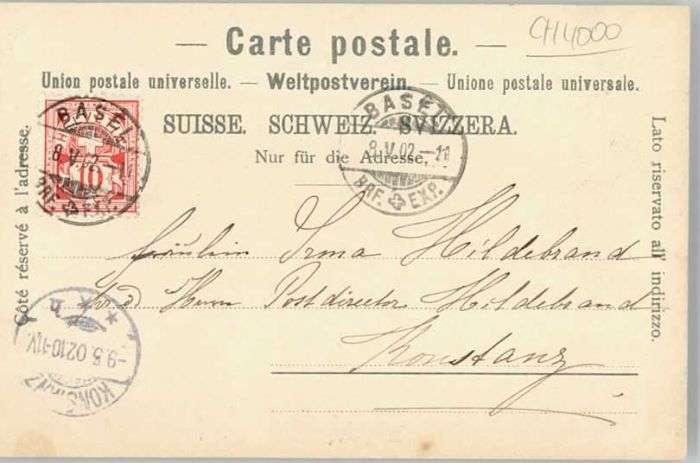 CH4000
— Carte postale. —
Union postale universelle. — Weltpostverein. — Unione postale universale.
SUISSE. SCHWEIZ. SVIZZERA.
Nur für die Adresse.
Côté réservé à l'adresse.
Lato riservato all' indirizzo.
10
BASEL
8.V.02.-11
BRF. EXP.
BASEL
8.V.02.-11
BRF. EXP.
Fräulein Irma Hildebrand
Herrn Postdirector Hildebrand
Konstanz
KONSTANZ
-9.5.02.10-11V.